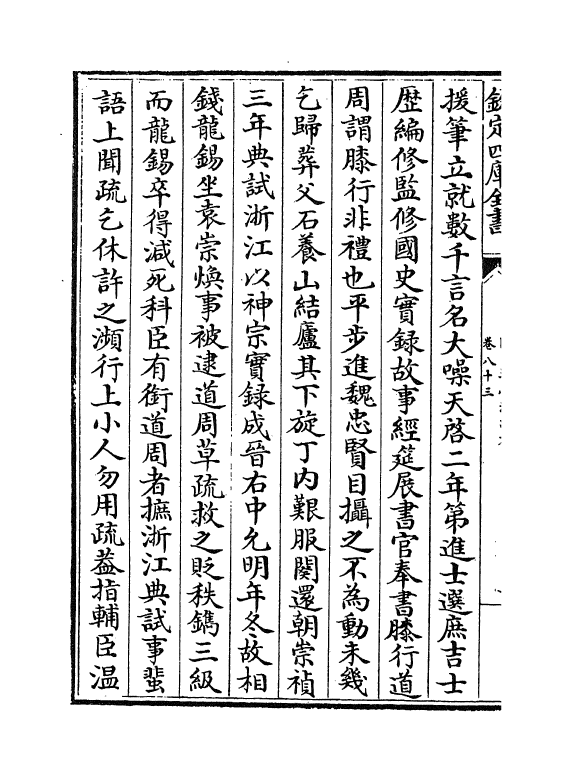 欽定四庫全書
卷八十三
援筆立就數千言名大噪天啓二年第進士選庶吉士
歴編修監修國史實録故事經筵展書官奉書膝行道
周謂膝行非禮也平步進魏忠賢目攝之不為動未幾
乞歸葬父石養山結廬其下旋丁内艱服闋還朝崇禎
三年典試浙江以神宗實録成晉右中允明年冬故相
錢龍錫坐袁崇煥事被逮道周草疏救之貶秩鐫三級
而龍錫卒得減死科臣有銜道周者摭浙江典試事蜚
語上聞疏乞休許之瀕行上小人勿用疏葢指輔臣温